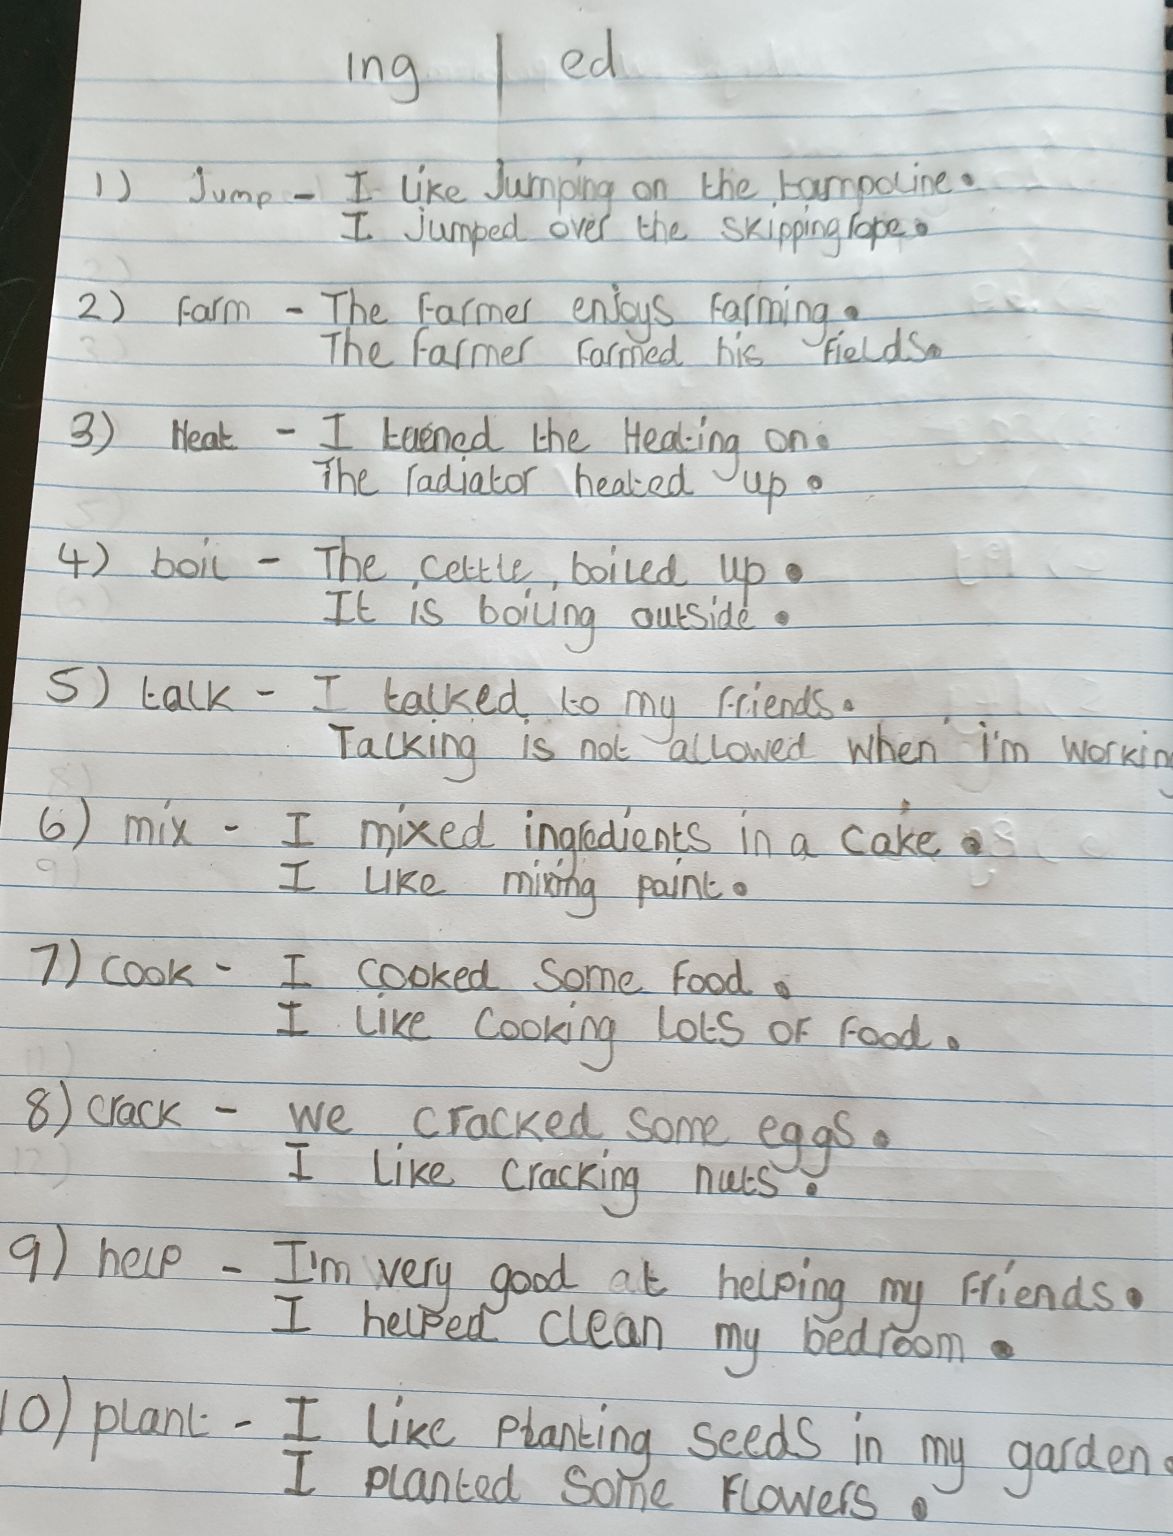 ing | ed
1) Jump - I like Jumping on the tampoline.
I jumped over the skipping rope.
2) farm - The farmer enjoys farming.
The farmer farmed his fields.
3) Heat - I turned the Heating on.
The radiator heated up.
4) boil - The cettle boiled up.
It is boiling outside.
5) talk - I talked to my friends.
Talking is not allowed when i'm working
6) mix - I mixed ingredients in a cake.
I like mixing paint.
7) cook - I cooked some food.
I like cooking lots of food.
8) crack - we cracked some eggs.
I like cracking nuts.
9) help - I'm very good at helping my friends.
I helped clean my bedroom.
10) plant - I like planting seeds in my garden.
I planted some flowers.